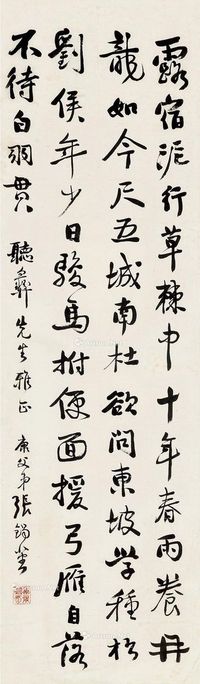 露宿泥行草棘中十年春雨養髯
龍如今尺五城南杜欲問東坡學種松
劉侯年少日駿馬拊便面援弓雁自落
不待白羽貫 聽彝先生雅正 庚父弟張錫銮